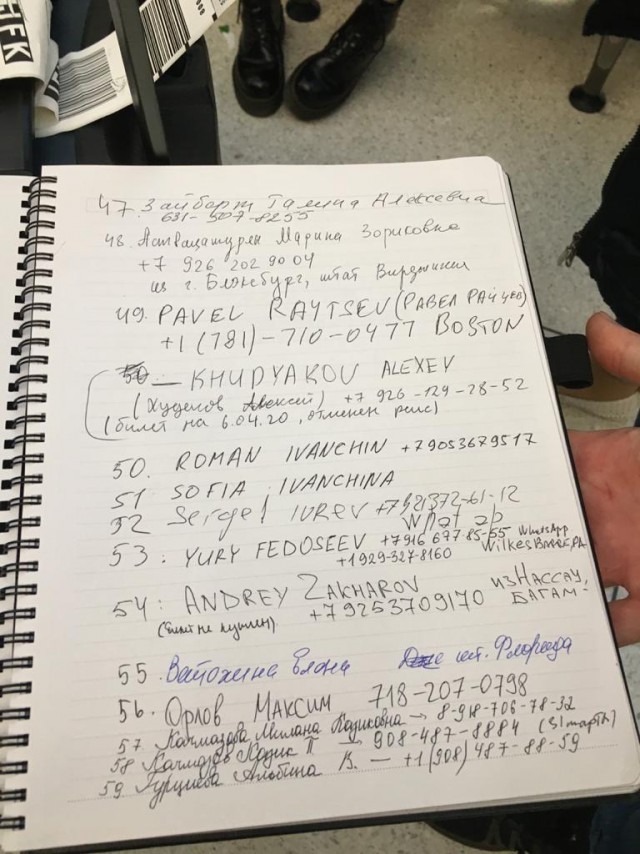 JFK
47. Зайбарт Галина Алексевна
631-507-8255
48. Аствацатурян Марина Зориковна
+7 926 202 90 04
из г. Блэксбург, штат Вирджиния
49. PAVEL RAYTSEV (РАВЕЛ РАЙЦЕВ)
+1(781)-710-0477 BOSTON
50 — KHUDYAKOV ALEXEY
(Худяков Алексей) +7 926-129-28-52
(билет на 6.04.20, отменен рейс)
50. ROMAN IVANCHIN +79053679517
51 SOFIA IVANCHINA
52 Sergei IUREV +7921372-61-12
What ap
53. YURY FEDOSEEV +7916 697 85-55 WhatsApp
+1929-327-8160 WilkesBarre, PA
54. ANDREY ZAKHAROV из НАССАУ,
(билет не куплен) +79253709170 БАГАМ.
55. Елена шт. Флорида
56. Орлов Максим 718-207-0798
57. Качмазова Милана Казиковна → 8-918-706-78-32
58 Качмазов Казик П → 908-487-8884 (31 марта)
59. Гурциева Альбина В. — +1(908)487-88-59